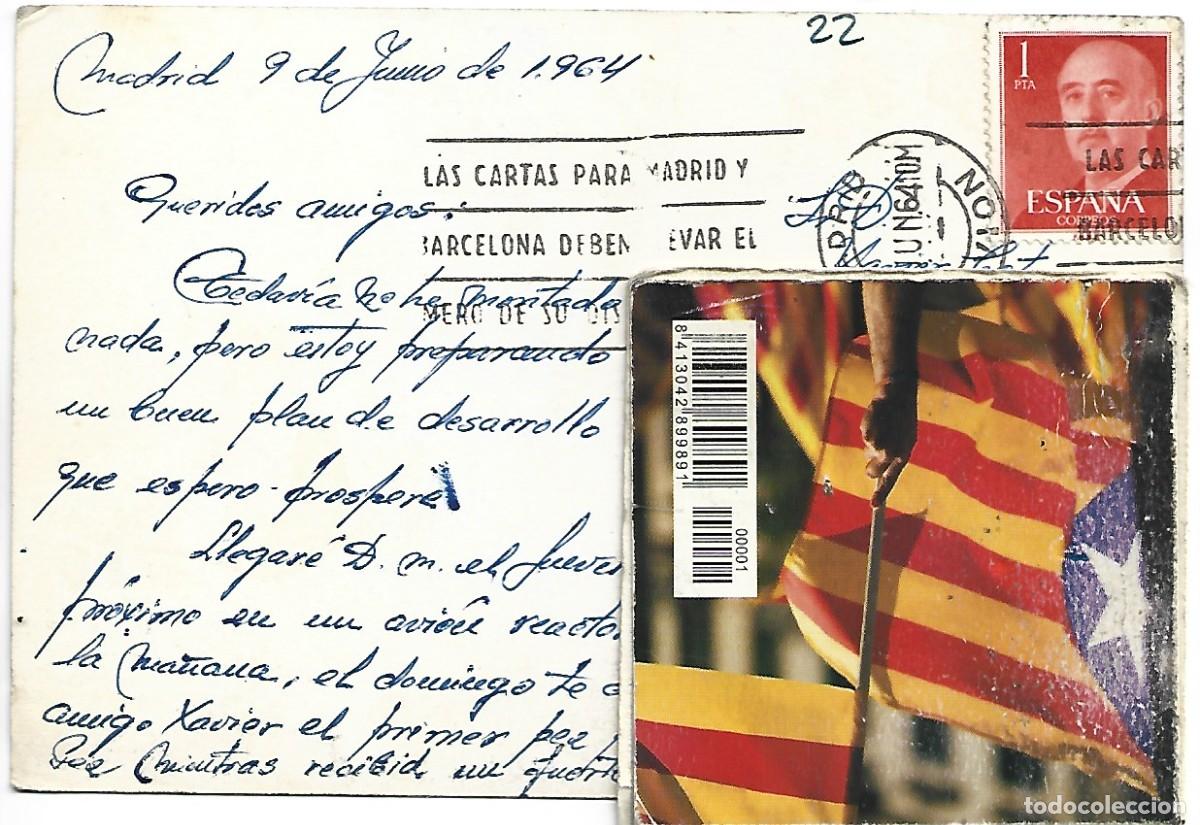 22
Madrid 9 de Junio de 1.964
1
PTA
ESPAÑA
CORREOS
LAS CARTAS PARA MADRID Y
BARCELONA DEBEN EVAR EL
MERO DE SU DIS
LAS CAR
BARCELO
Queridos amigos:
Todavía no he montado
nada, pero estoy preparando
un buen plan de desarrollo
que espero - prospere
Llegaré D. m. el Jueves
próximo en un avión reacto
la mañana, el domingo te
amigo Xavier el primer pea
Pea Mientras recibid un fuerte
8 413042 899891
00001
todocoleccion